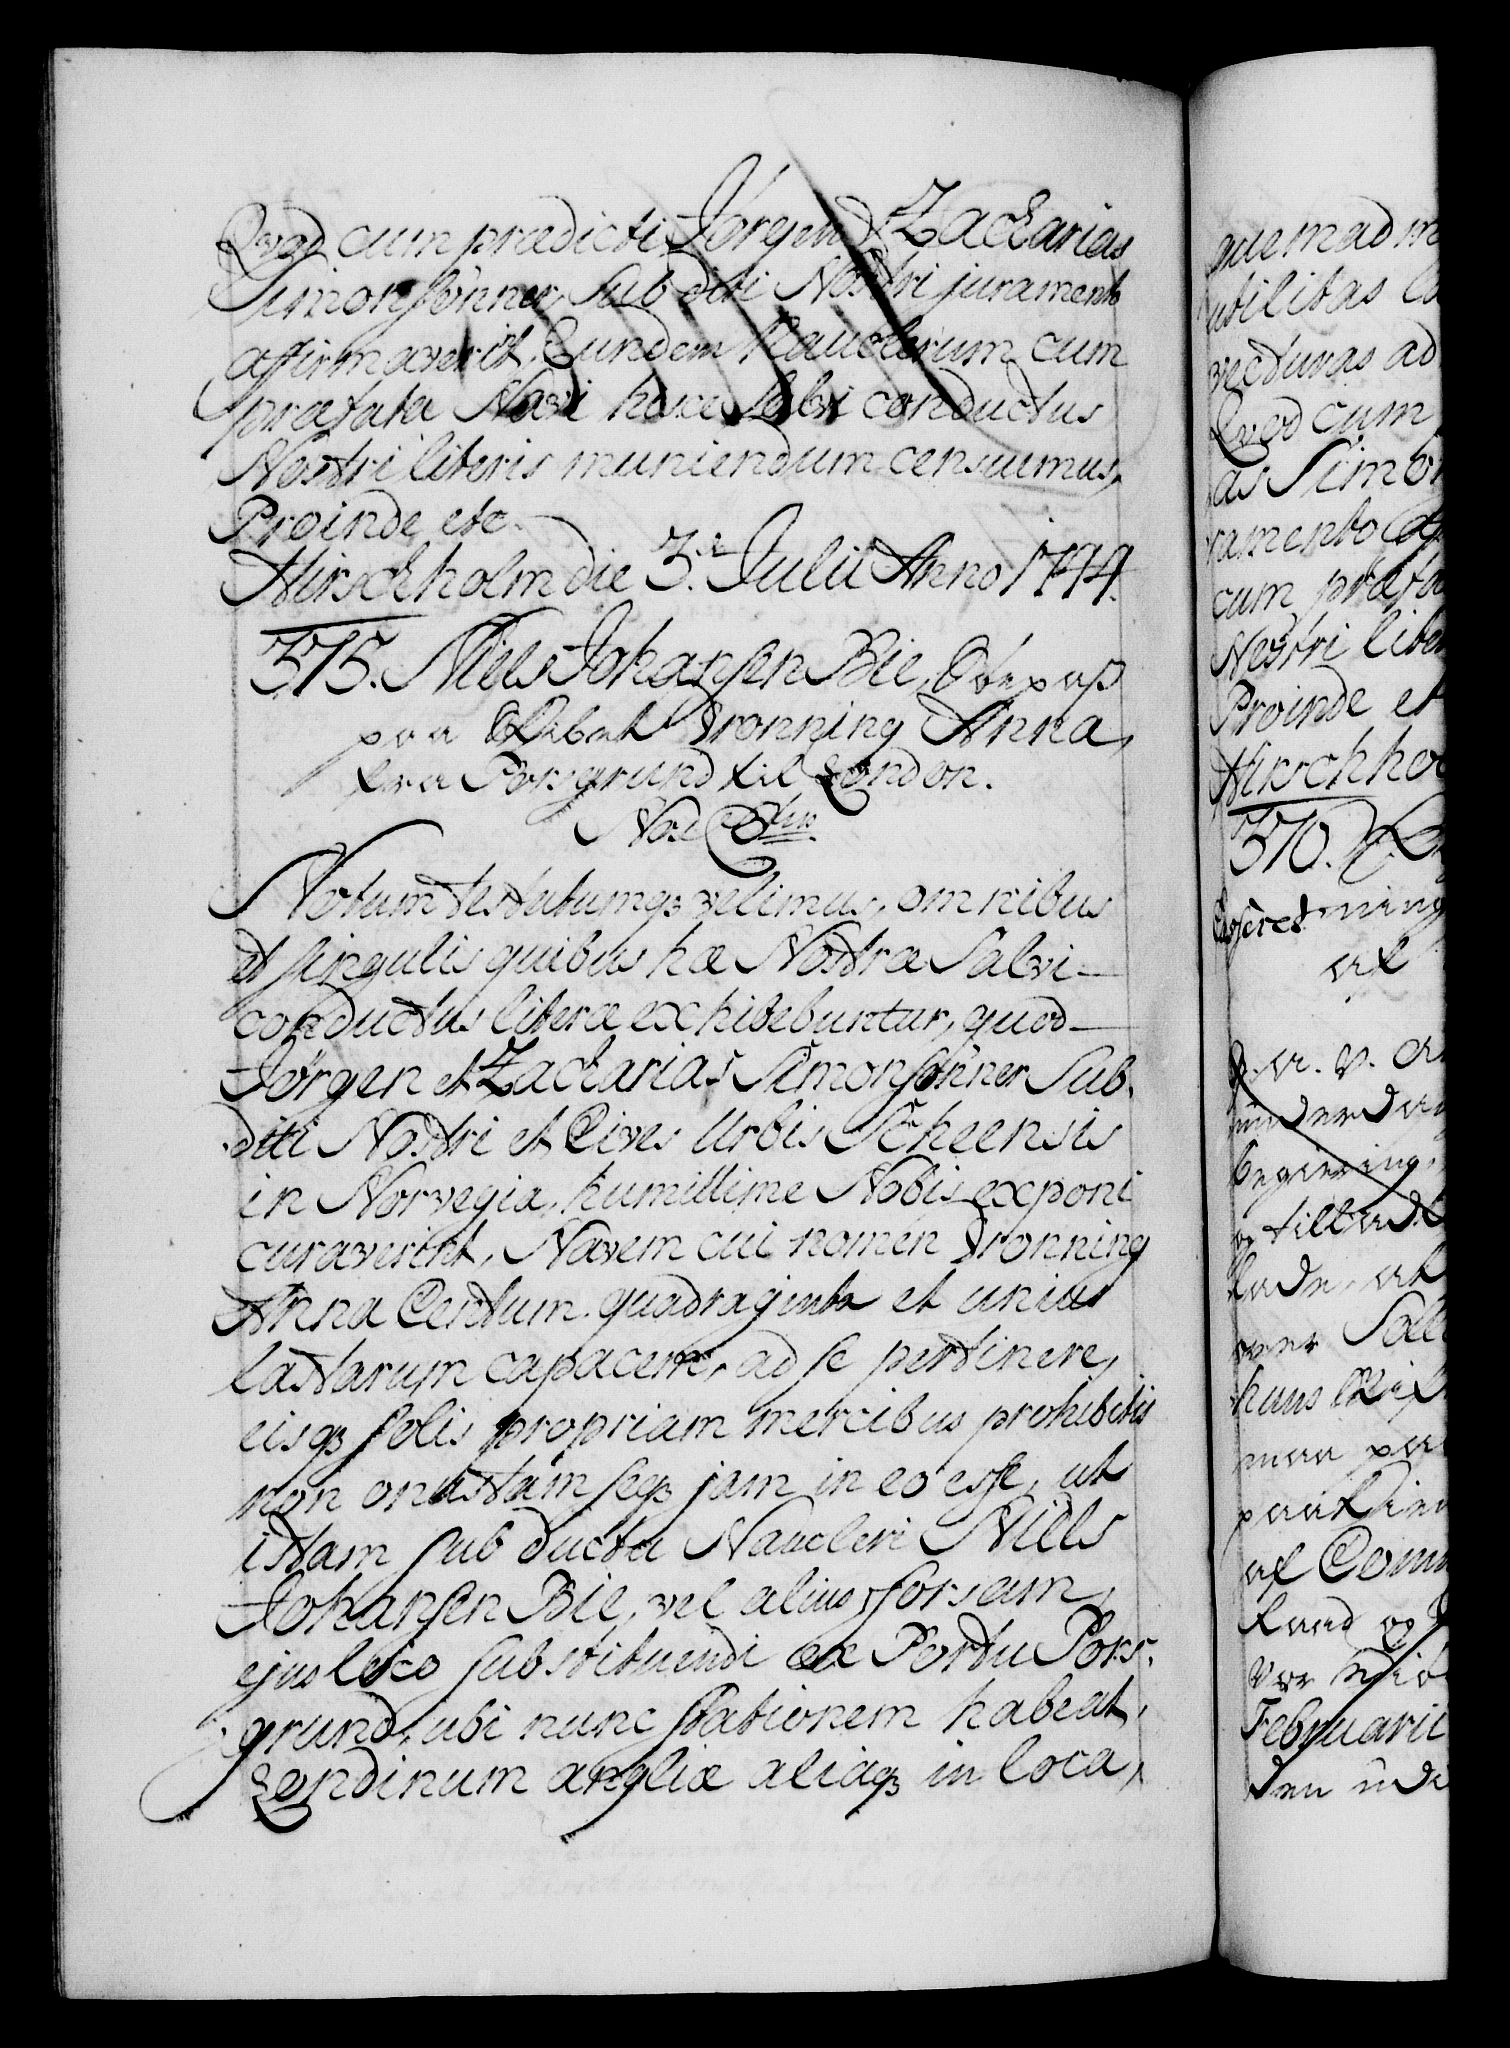 Qvod cum prædicti Jørgen & Zacharias
Simonsønner, Subditi Nostri juramento
affirmaverint, Eundem Nauclerum cum
præfata Navi hisce Salvi conductus
Nostri literis muniendum censuimus,
Proinde etc.
Hirschholm die 3.tie Julii Anno 1744.
375. Niels Johansen Bie, Søepass
paa Skibet Dronning Anna,
fra Porsgrund til London.
Nos C 6tus
Notum testatumq3 velimus, omnibus
et singulis quibus hæ Nostræ Salvi-
conductus literæ exhibebuntur, quod
Jørgen et Zacharias Simonsønner Sub-
diti Nostri et Cives Urbis Scheensis
in Norvegia, humillime Nobis exponi
curaverint, Navem cui nomen Dronning
Anna Centum quadraginta et unius
lastarum capacem, ad se pertinere,
eisq3 solis propriam mercibus prohibitis
non onustam seq3 jam in eo esse, ut
istam sub ductu Naucleri Niels
Johansen Bie, vel alius forsam,
ejus loco substituendi ex Portu Pors-
grund, ubi nunc stationem habeat,
Londinum angliæ aliaq3 in loca,
quemadm
utilitas
vecturas ad
Qvod cum
as Simon
ramento
cum præfa
Nostri liter
Proinde et
Hirschho
376.
af
G. A. V. A
begiering,
tillad
lade, at
over
huus
maa paa
af Comm
Februarii